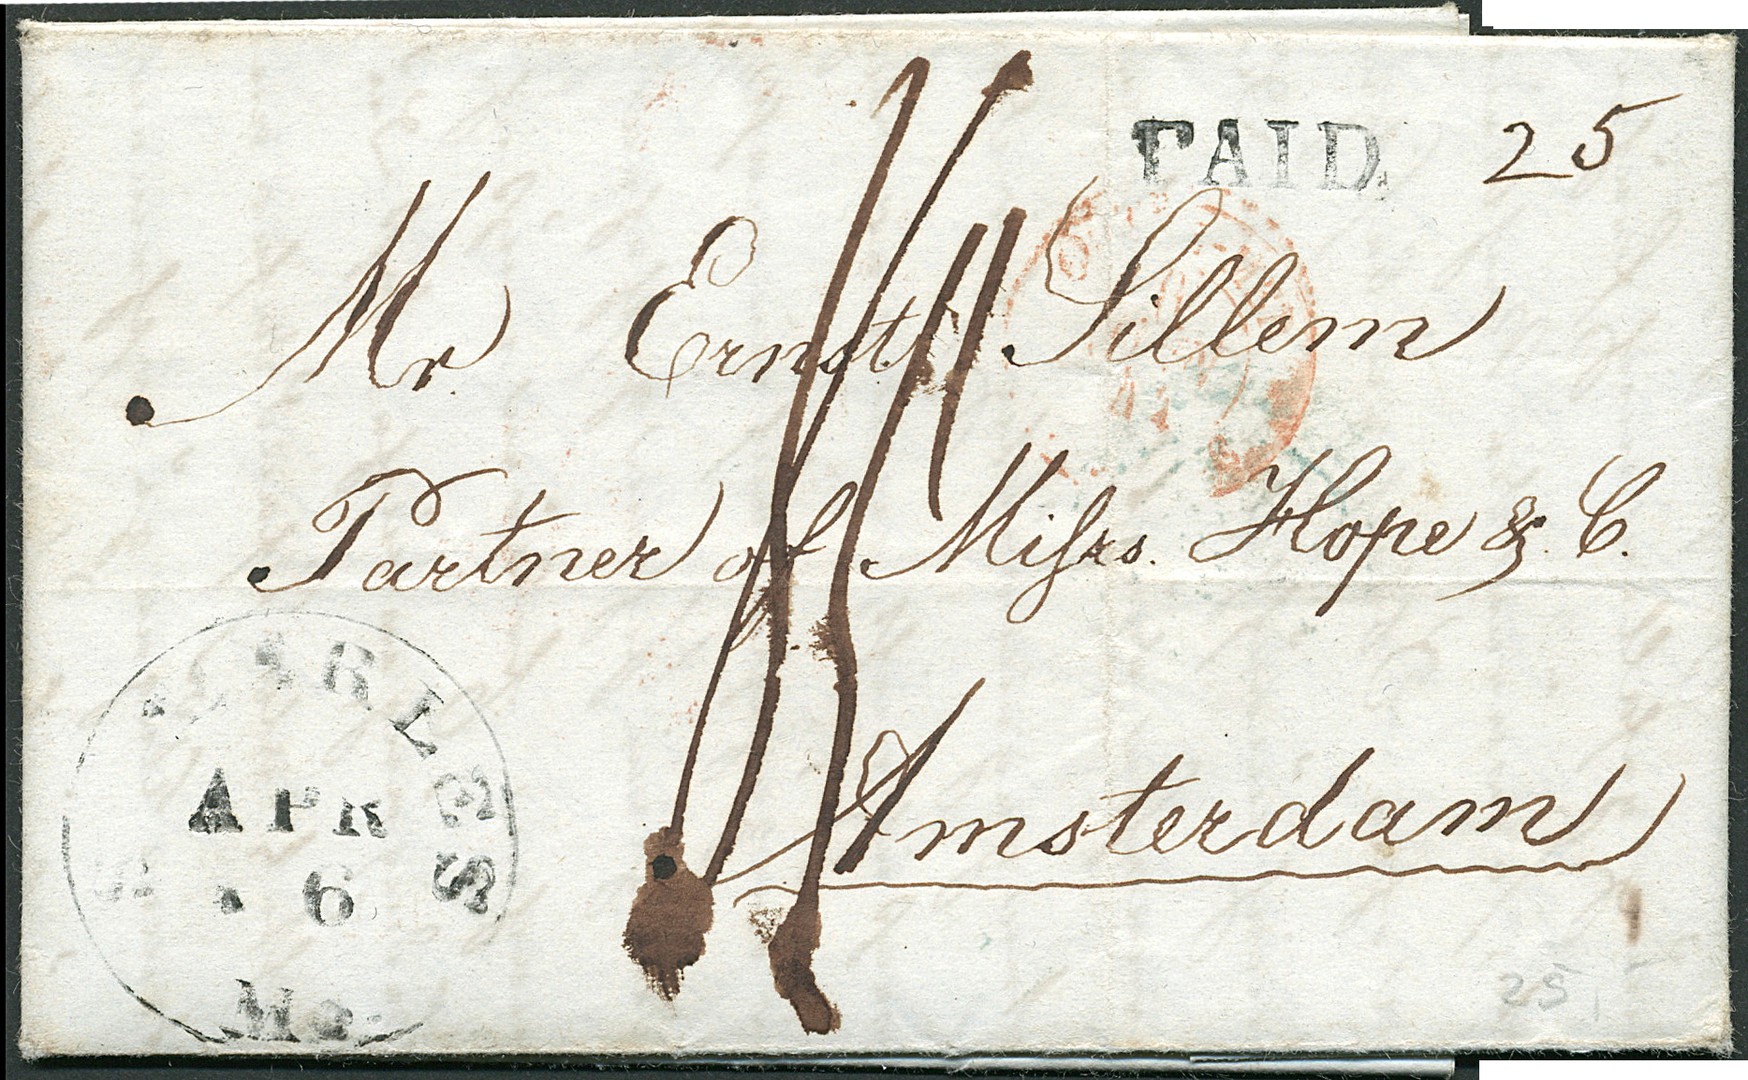 PAID 25
Mr Ernst Sillem
Partner of Messrs. Hope & C.
Amsterdam
St CHARLES
APR
6
Mo.
25